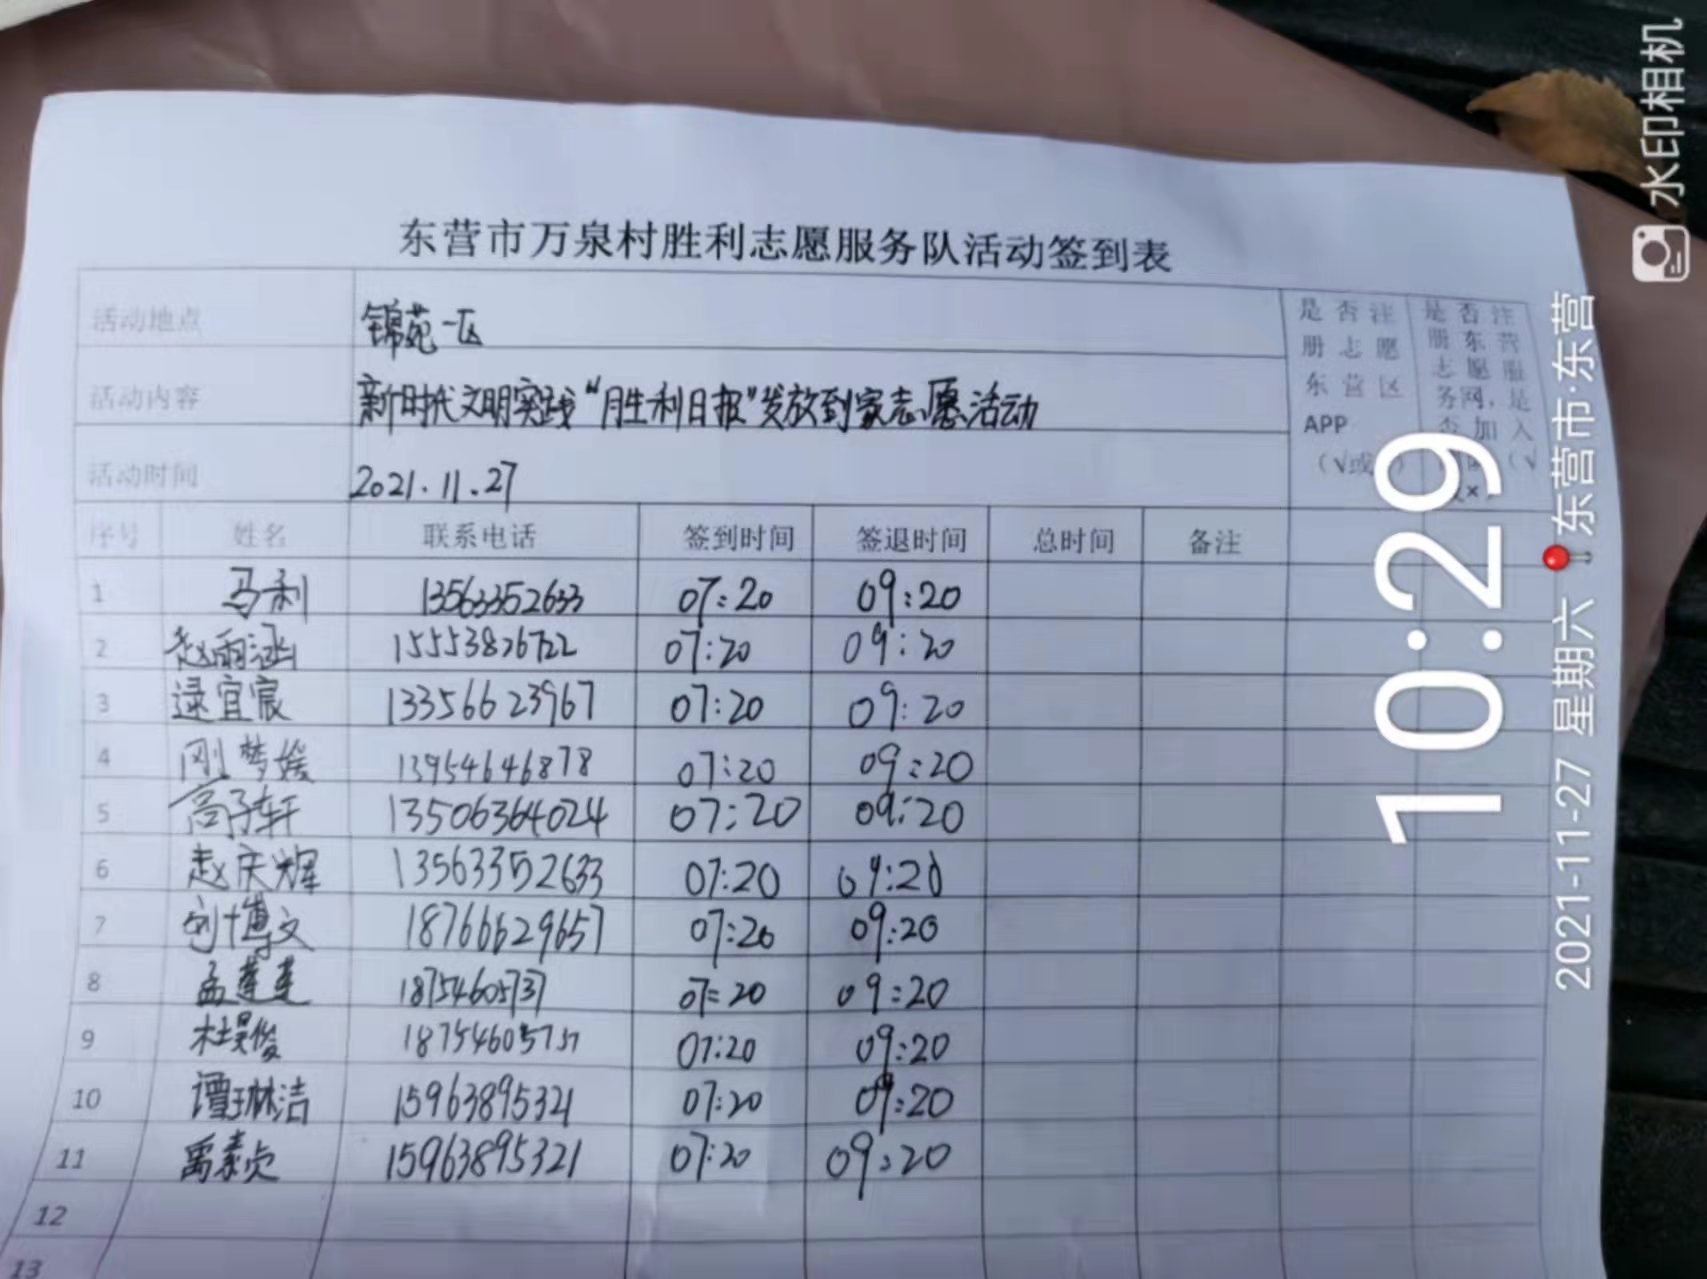 东营市万泉村胜利志愿服务队活动签到表
活动地点 锦苑一区
活动内容 新时代文明实践“胜利日报”发放到家志愿活动
活动时间 2021.11.27
是否注册志愿东营区APP（√或
是否注册东营志愿服务网，是否加入
序号 姓名 联系电话 签到时间 签退时间 总时间 备注
1 马利 13563352633 07:20 09:20
2 赵雨涵 15553826722 07:20 09:20
3 逯宜宸 13356623967 07:20 09:20
4 刚梦媛 13954646878 07:20 09:20
5 高子轩 13506364024 07:20 09:20
6 赵庆辉 13563352633 07:20 09:20
7 刘博文 18766629657 07:20 09:20
8 孟莲莲 18754605737 07:20 09:20
9 杜昊俊 18754605737 07:20 09:20
10 谭琳洁 15963895321 07:20 09:20
11 禹素贞 15963895321 07:20 09:20
12
13
10:29
2021-11-27 星期六 东营市·东营
水印相机